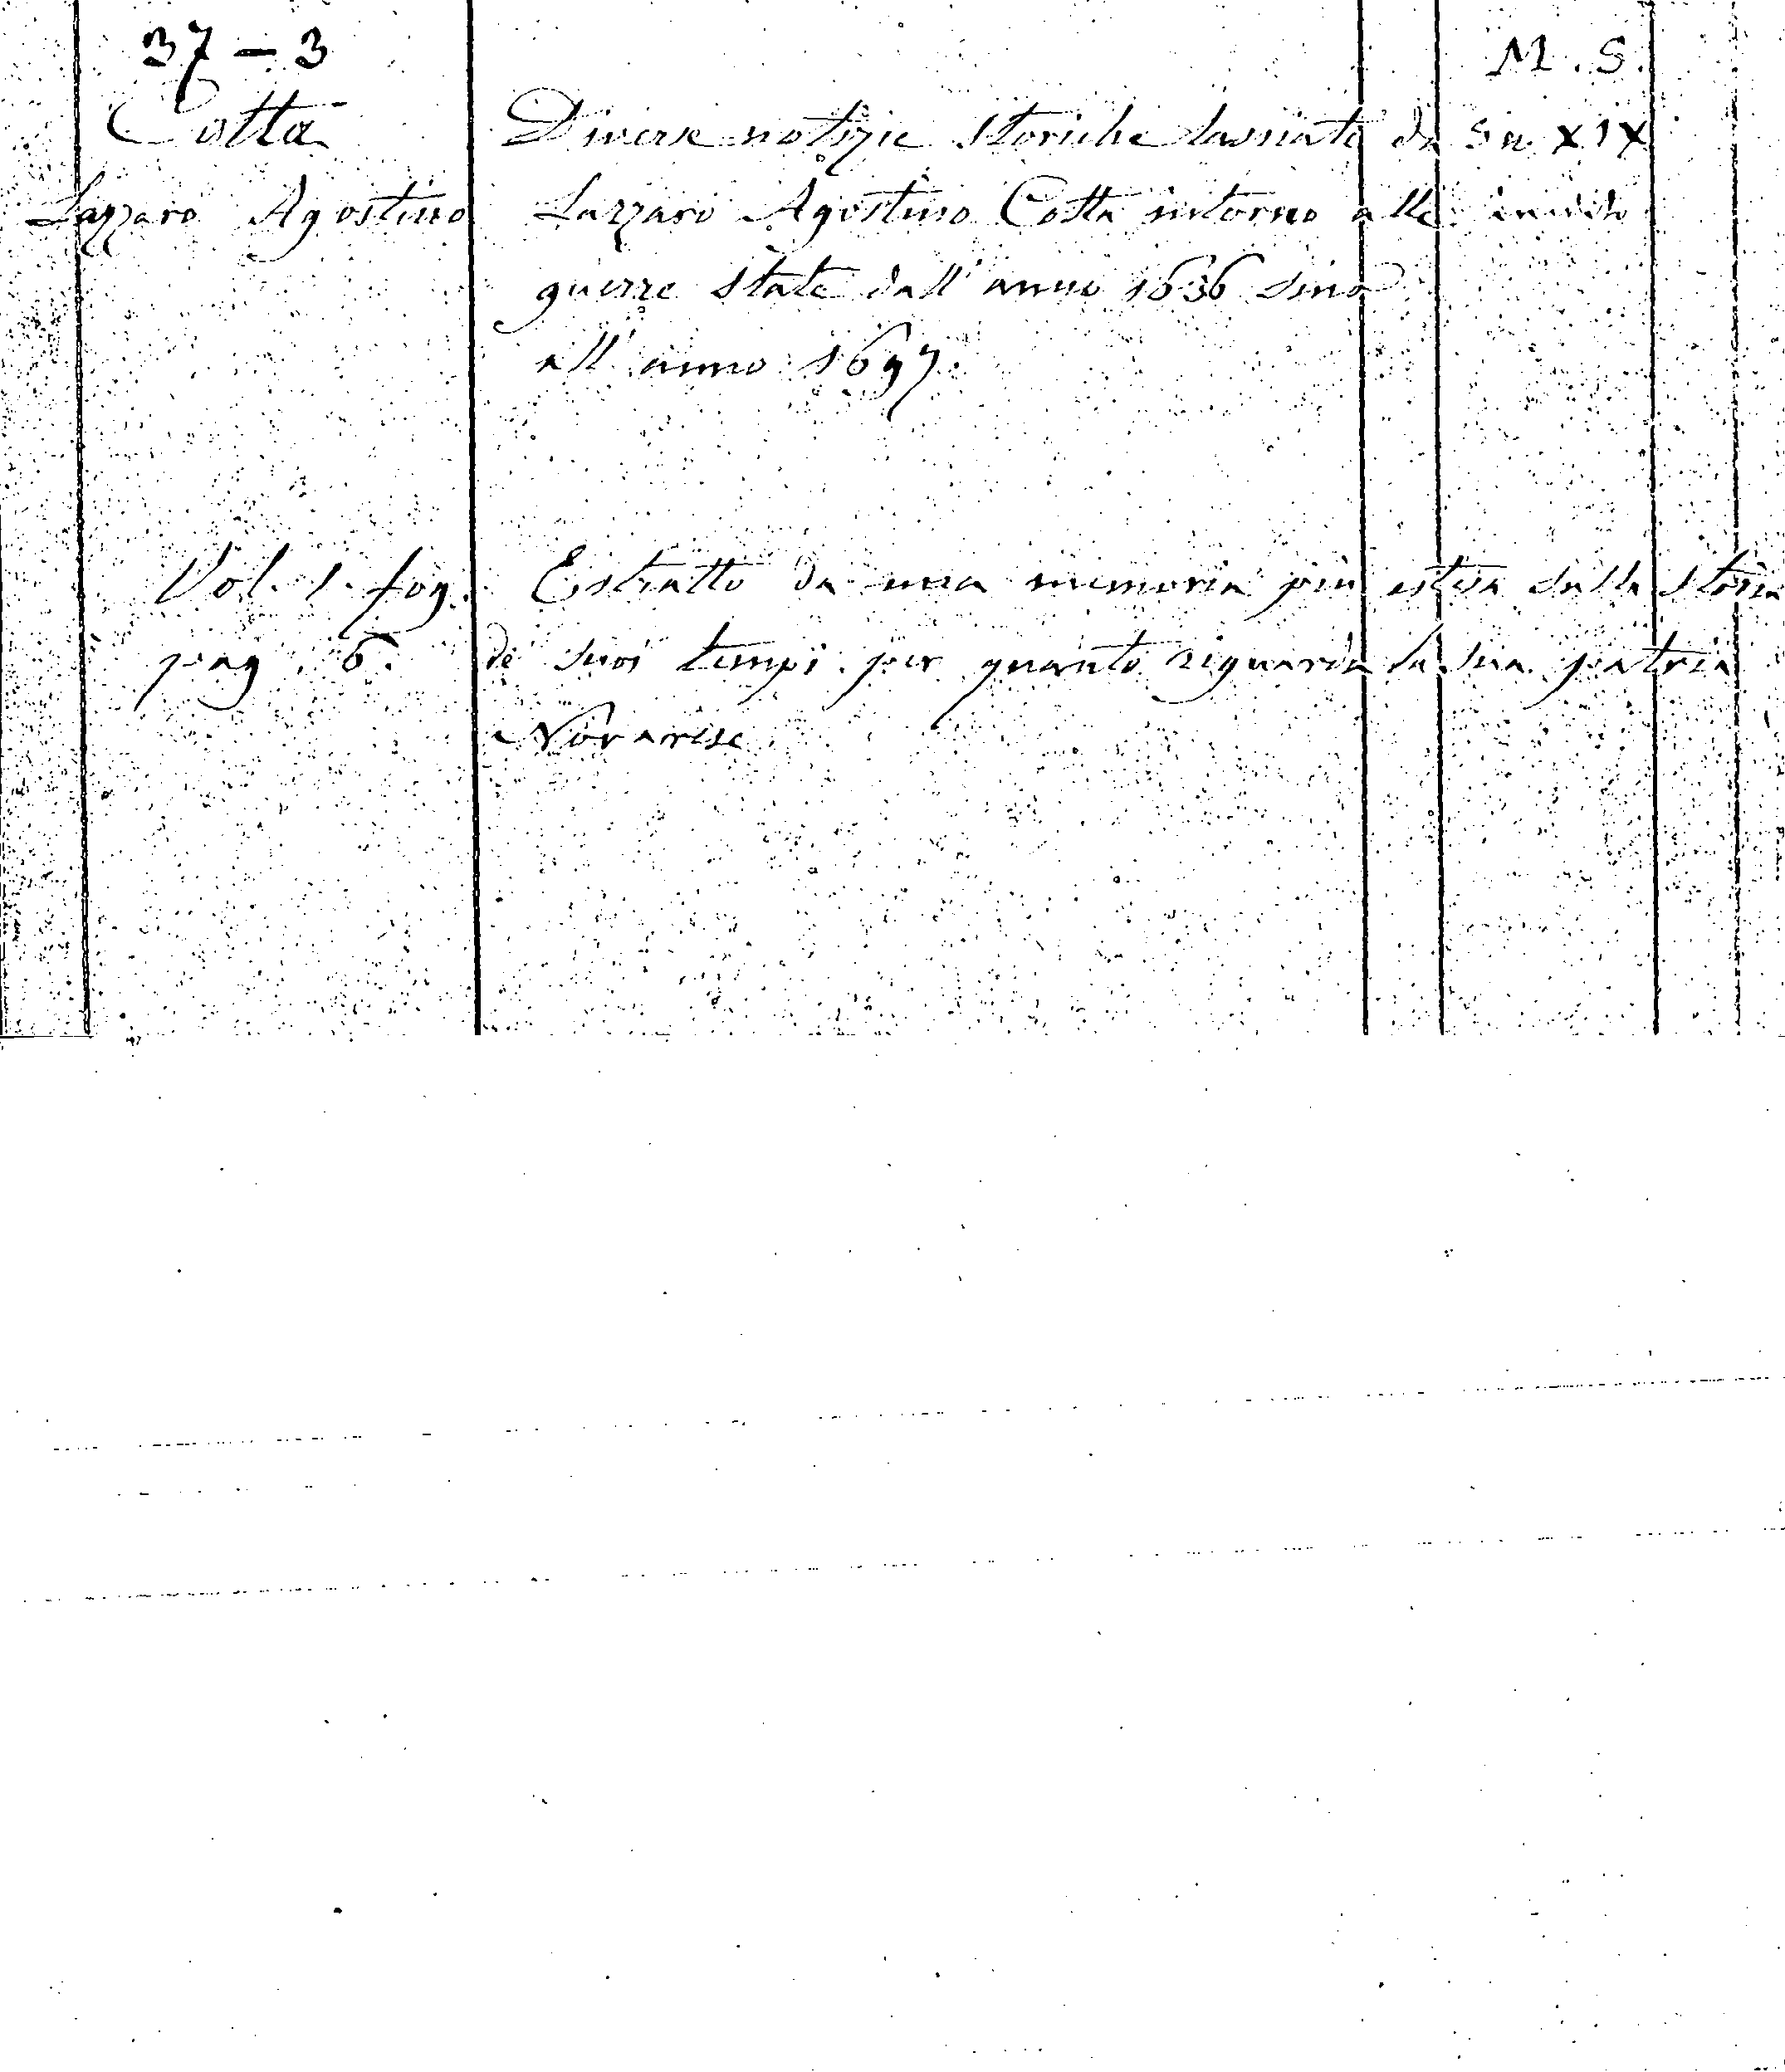 37 - 3
M. S.
Cotta
Diverse notizie storiche lasciate da
Sec XIX
Lazzaro Agostino
Lazzaro Agostino Cotta intorno alle
inedito
guerre state dall' anno 1636 sino
all' anno 1697.
Vol. 1. fog.
Estratto da una memoria più estesa sulla storia
pag. 6.
de' suoi tempi per quanto riguarda la sua patria
Novarese